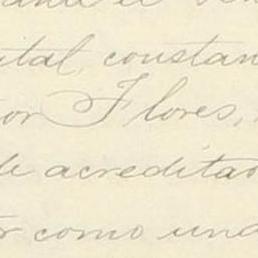 ital, constan
or Flores,
de acreditad
r como und